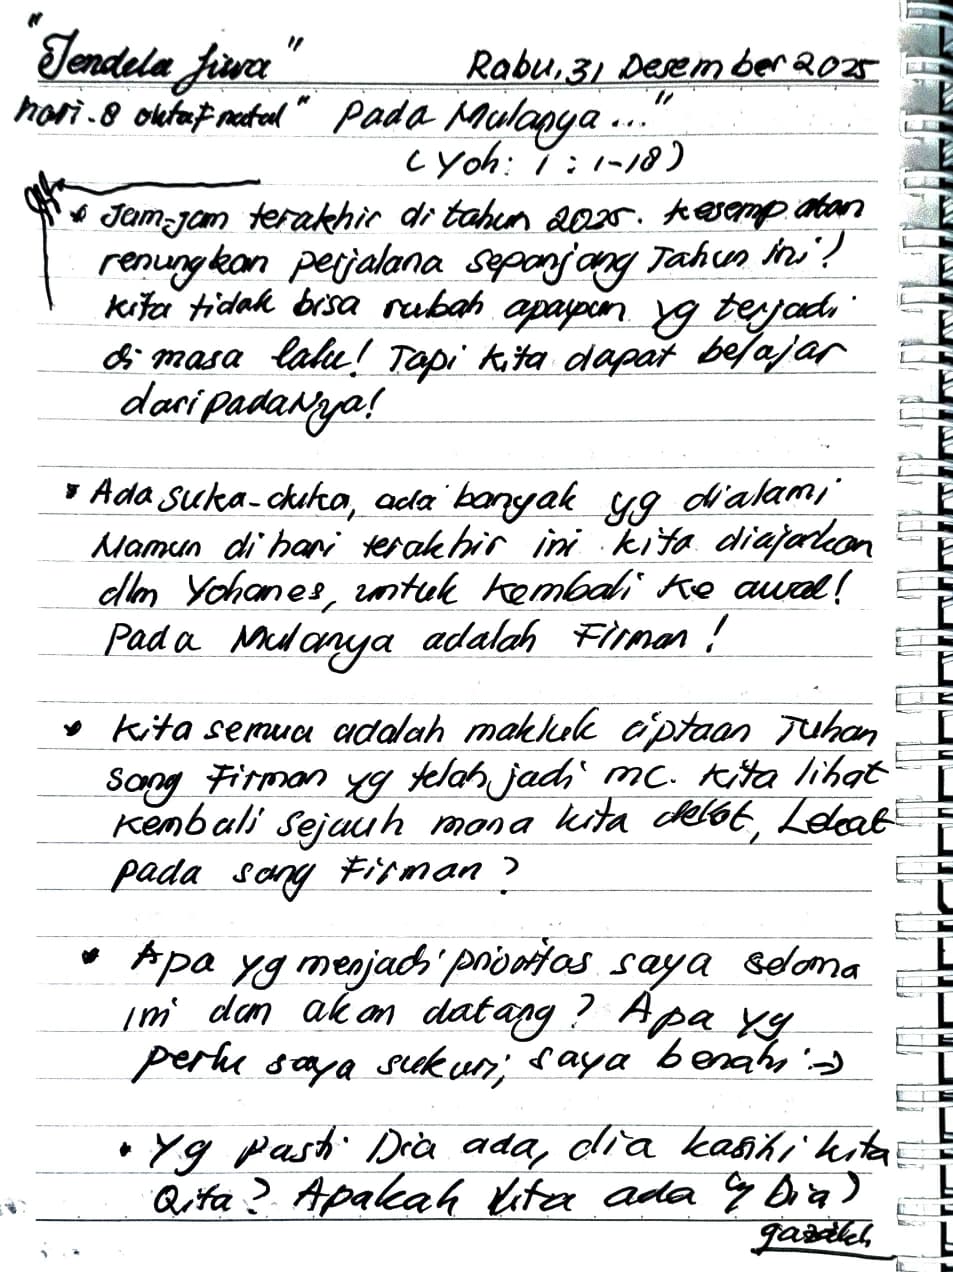 "Jendela Jiwa" Rabu, 31 Desember 2025
hari-8 oktaf natal "Pada Mulanya..."
(Yoh: 1 : 1-18)
Jam-jam terakhir di tahun 2025. Kesempatan
renungkan perjalana sepanjang Tahun ini!
Kita tidak bisa rubah apapun yg terjadi
di masa lalu! Tapi kita dapat belajar
daripadaNya!
Ada suka-duka, ada banyak yg dialami
Namun di hari terakhir ini kita diajarkan
dlm Yohanes, untuk kembali ke awal!
Pada Mulanya adalah Firman!
Kita semua adalah makluk ciptaan Tuhan
Sang Firman yg telah jadi mc. Kita lihat
kembali sejauh mana kita dekat, Lekat
pada sang Firman?
Apa yg menjadi prioritas saya selama
ini dan akan datang? Apa yg
perlu saya sukuri, saya benahi :-)
Yg pasti Dia ada, dia kasihi kita
Qita? Apakah kita ada Dia?